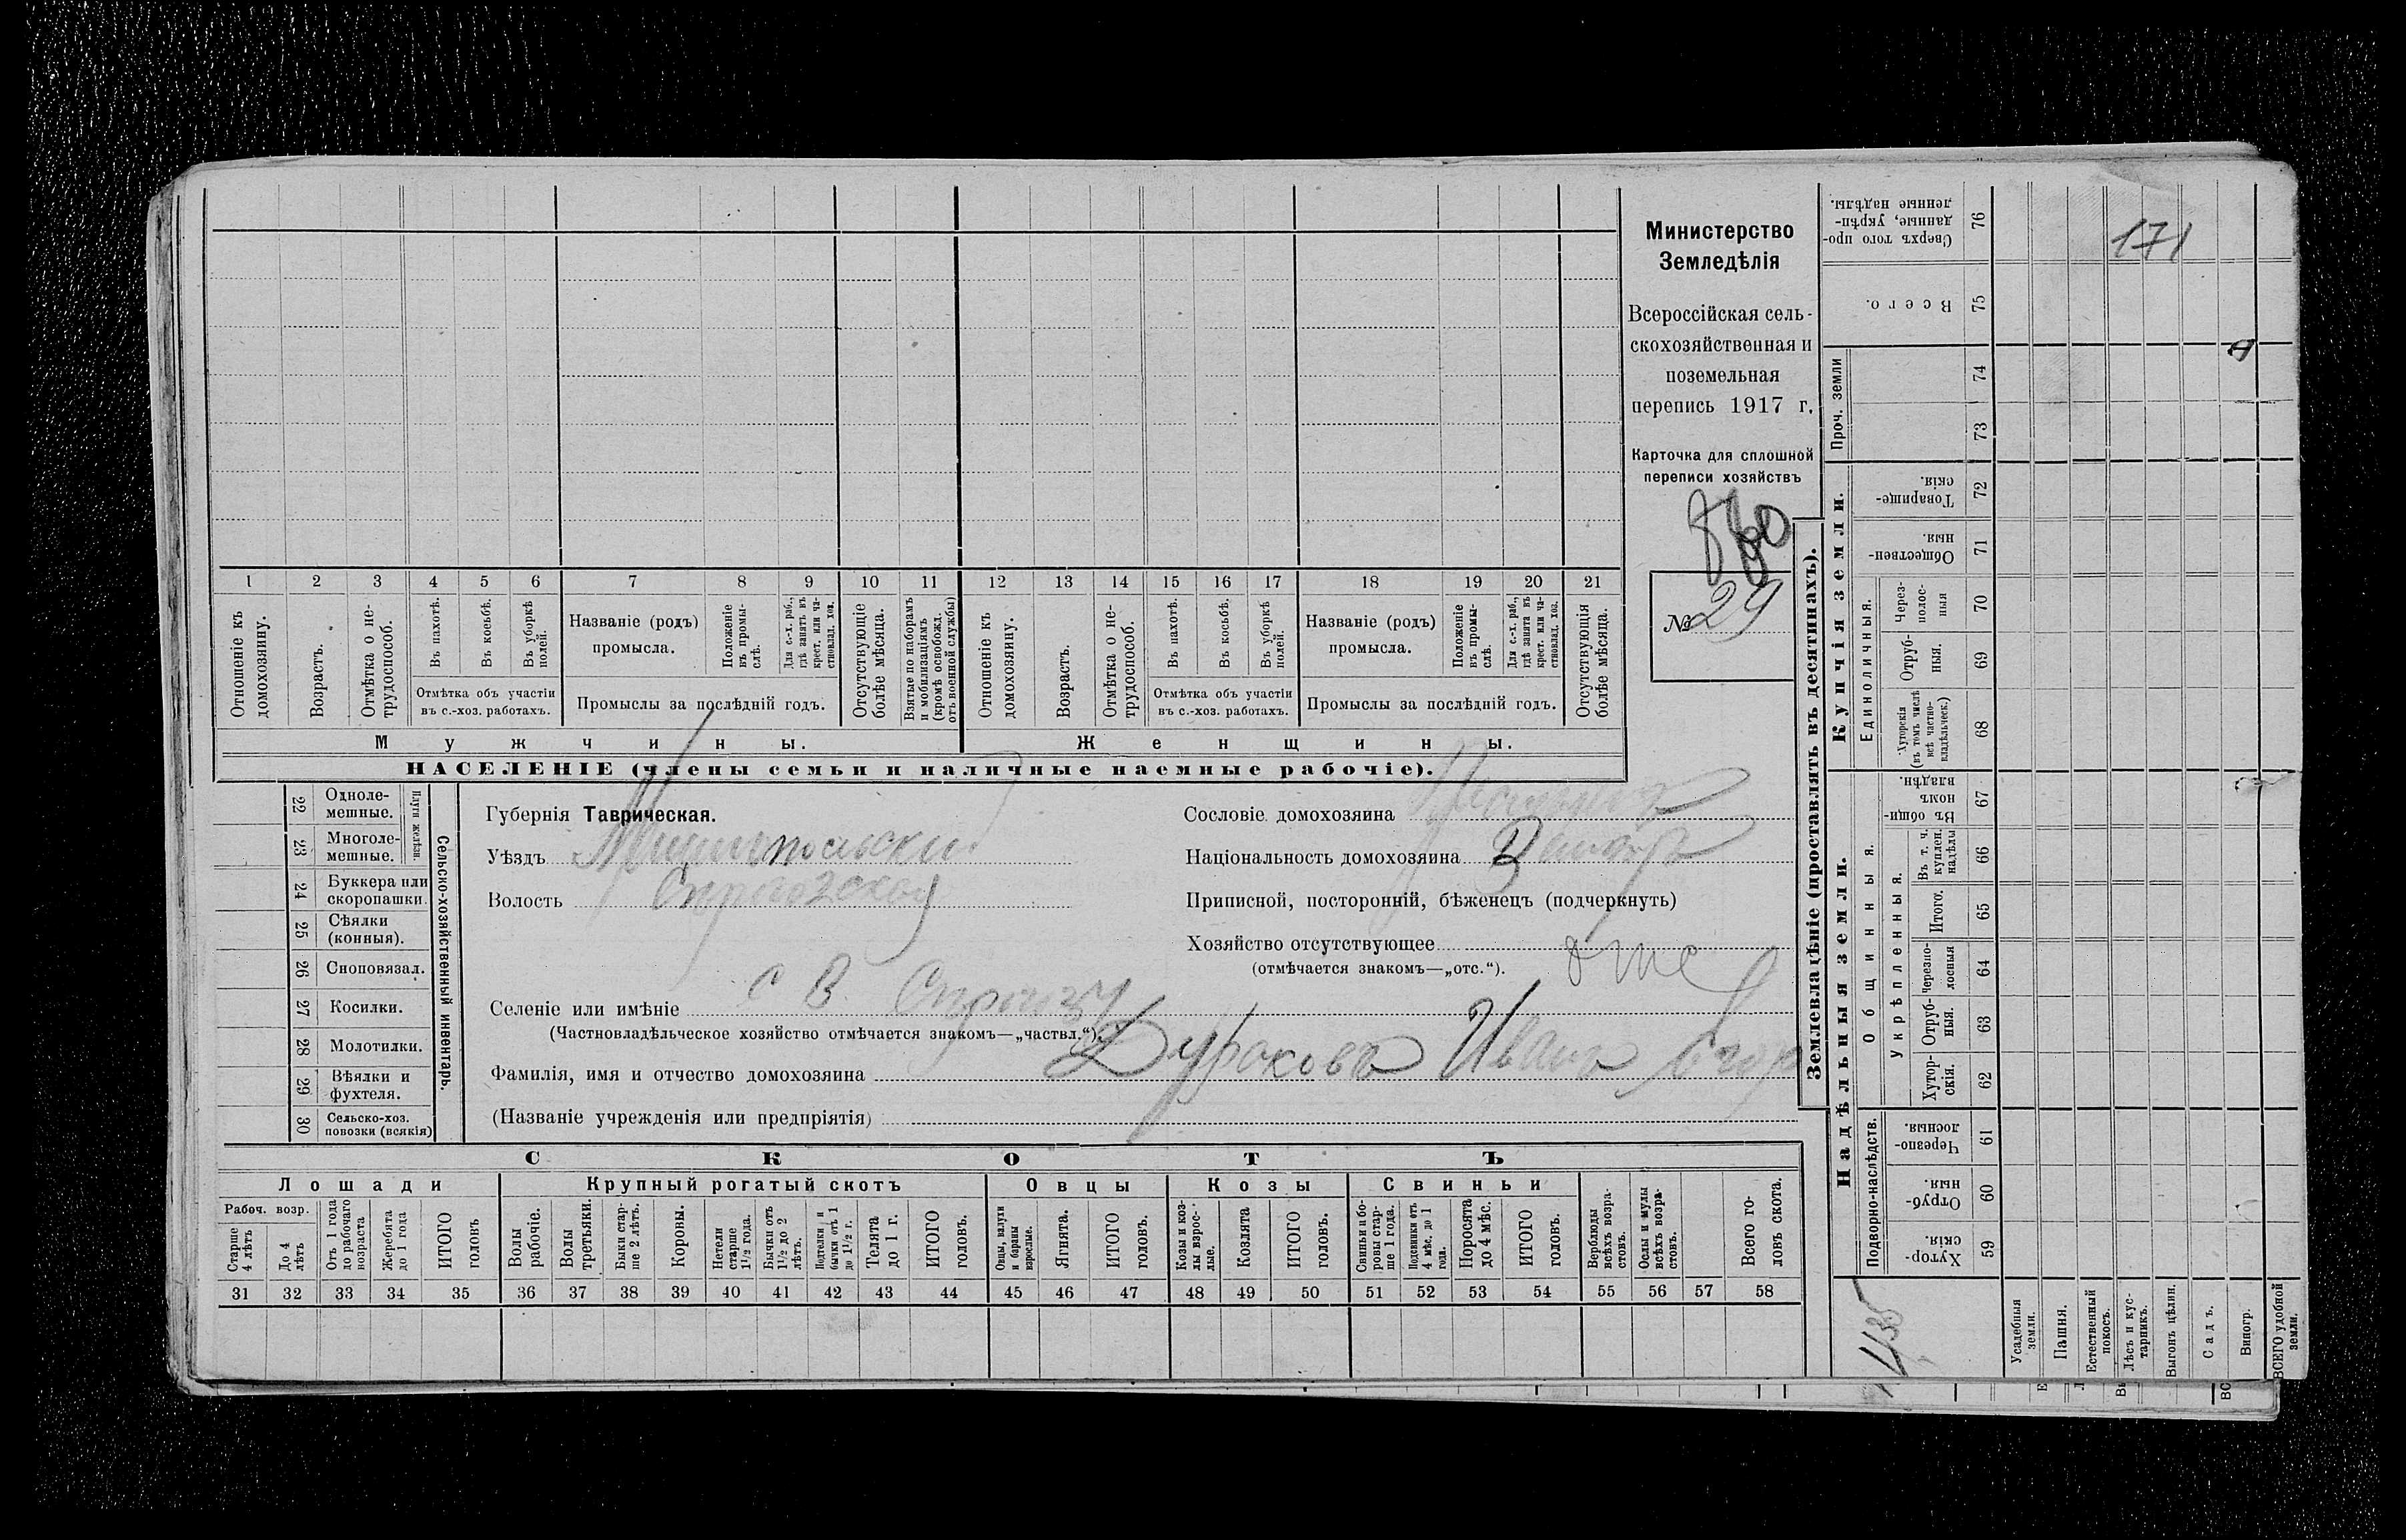 Министерство
Земледѣлія
Всероссійская сель-
скохозяйственная и
поземельная
перепись 1917 г.
Карточка для сплошной
переписи хозяйствъ
860
№ 29
1 2 3 4 5 6 7 8 9 10 11 12 13 14 15 16 17 18 19 20 21
Отношеніе къ домохозяину.
Возрастъ.
Отмѣтка о не-трудоспособ.
Въ пахотѣ.
Въ косьбѣ.
Въ уборкѣ полей.
Отмѣтка объ участіи
въ с.-хоз. работахъ.
Названіе (родъ)
промысла.
Положеніе въ промы-слѣ.
Для с.-х. раб., гдѣ занятъ въ крест. или ча-стновлад. хоз.
Промыслы за послѣдній годъ.
Отсутствующіе болѣе мѣсяца.
Взятые по наборамъ и мобилизаціямъ (кромѣ освобожд. отъ военной службы)
Отношеніе къ домохозяину.
Возрастъ.
Отмѣтка о не-трудоспособ.
Въ пахотѣ.
Въ косьбѣ.
Въ уборкѣ полей.
Отмѣтка объ участіи
въ с.-хоз. работахъ.
Названіе (родъ)
промысла.
Положеніе въ промы-слѣ.
Для с.-х. раб., гдѣ занята въ крест. или ча-стновлад. хоз.
Промыслы за послѣдній годъ.
Отсутствующія болѣе мѣсяца.
Мужчины.
Женщины.
НАСЕЛЕНІЕ (члены семьи и наличные наемные рабочіе).
22 Одноле-мешные.
23 Многоле-мешные.
Плуги желѣзн.
24 Буккера или скоропашки.
25 Сѣялки (конныя).
26 Сноповязал.
27 Косилки.
28 Молотилки.
29 Вѣялки и фухтеля.
30 Сельско-хоз. повозки (всякія)
Сельско-хозяйственный инвентарь.
Губернія Таврическая.
Уѣздъ
Волость
Сословіе домохозяина
Національность домохозяина
Приписной, посторонній, бѣженецъ (подчеркнуть)
Хозяйство отсутствующее отс
(отмѣчается знакомъ—„отс.“).
Селеніе или имѣніе с В.
(Частновладѣльческое хозяйство отмѣчается знакомъ—„частвл.“).
Фамилія, имя и отчество домохозяина Дураковъ Иванъ
(Названіе учрежденія или предпріятія)
СКОТЪ
Лошади
Крупный рогатый скотъ
Овцы
Козы
Свиньи
Рабоч. возр.
Старше 4 лѣтъ
До 4 лѣтъ
Отъ 1 года до рабочаго возраста
Жеребята до 1 года
ИТОГО головъ
Волы рабочіе.
Волы третьяки.
Быки стар-ше 2 лѣтъ.
Коровы.
Нетели старше 1½ года.
Бычки отъ 1½ до 2 лѣтъ.
Подтелки и бычки отъ 1 до 1½ г.
Телята до 1 г.
ИТОГО головъ.
Овцы, валухи и бараны взрослые.
Ягнята.
ИТОГО головъ.
Козы и коз-лы взрос-лые.
Козлята
ИТОГО головъ.
Свиньи и бо-ровы стар-ше 1 года.
Подсвинки отъ 4 мѣс. до 1 года.
Поросята до 4 мѣс.
ИТОГО головъ.
Верблюды всѣхъ возра-стовъ.
Ослы и мулы всѣхъ возра-стовъ.
Всего го-ловъ скота.
31 32 33 34 35 36 37 38 39 40 41 42 43 44 45 46 47 48 49 50 51 52 53 54 55 56 57 58
Землевладѣніе (проставлять въ десятинахъ).
Надѣльныя земли.
Купчія земли.
Проч. земли
Подворно-наслѣдств.
Общинныя.
Укрѣпленныя.
Единоличныя.
Хутор-скія. 59
Отруб-ныя. 60
Черезпо-лосныя. 61
Хутор-скія. 62
Отруб-ныя. 63
Черезпо-лосныя 64
Итого. 65
Въ т. ч. куплен. надѣлы 66
Въ общи-номъ владѣн. 67
Хуторскія (въ томъ числѣ всѣ частно-владѣльческ.) 68
Отруб-ныя. 69
Через-полос-ныя 70
Обществен-ныя. 71
Товарище-скія. 72
73
74
Всего. 75
Сверхъ того про-данные, укрѣп-ленные надѣлы. 76
171
Усадебныя земли.
Пашня.
Естественный покосъ.
Лѣсъ и кус-тарникъ.
Выгонъ цѣлин.
Садъ.
Виногр.
ВСЕГО удобной земли.